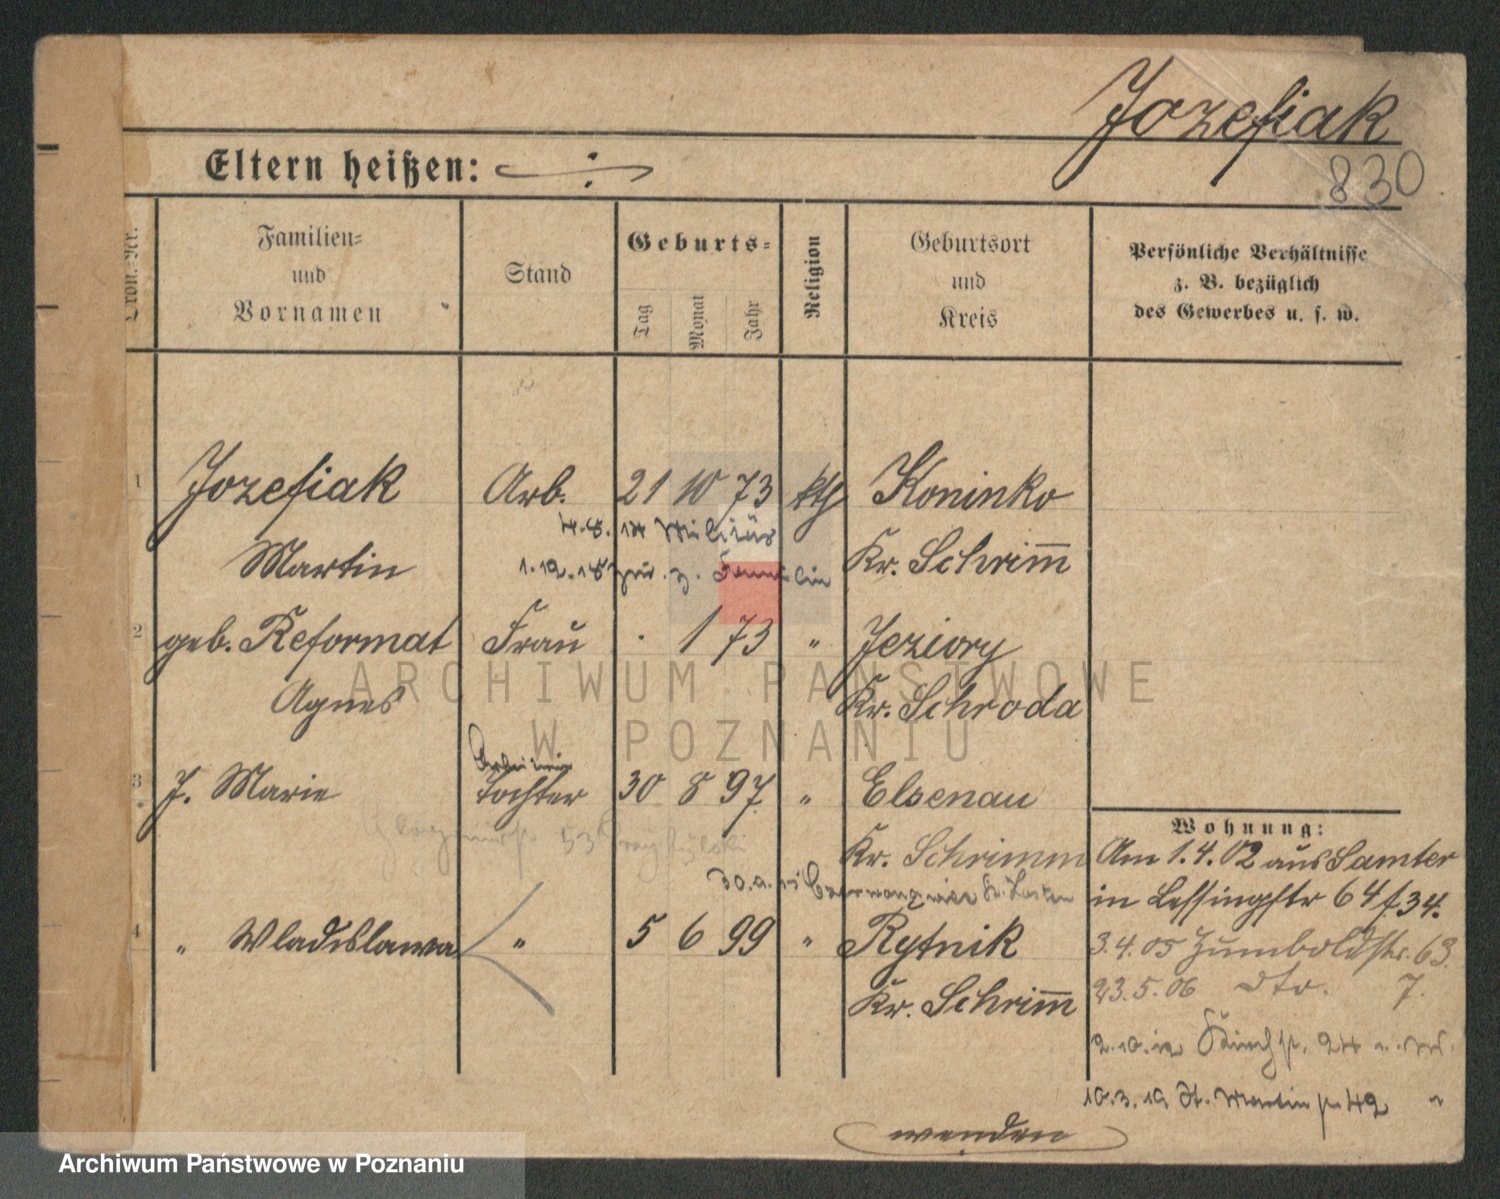 Jozefiak
830
Eltern heißen: ÷
Familien-
und
Vornamen
Stand
Geburts-
Tag
Monat
Jahr
Religion
Geburtsort
und
Kreis
Persönliche Verhältnisse
z. B. bezüglich
des Gewerbes u. s. w.
1 Jozefiak Arb. 21 10 73 kth Koninko
4.8.14 Militär
Martin Kr. Schrim̅m̅
1.12.18 z. Familie
2 geb. Reformat Frau . 1 73 " Jeziory
Agnes Kr. Schroda
Arbeiterin
3 J. Marie Tochter 30 8 97 " Elsenau
53
Kr. Schrimm
4 " Wladislawa " 5 6 99 " Rytnik
Kr. Schrim̅m̅
Wohnung:
Am 1.4.02 aus Samter
in Lessingstr 64 f 34.
3.4.05 Humboldstr. 63.
23.5.06 dto. 7.
2.10.12 24
10.3.19 St. Martin str 42 "
wenden
ARCHIWUM PAŃSTWOWE
W POZNANIU
Archiwum Państwowe w Poznaniu